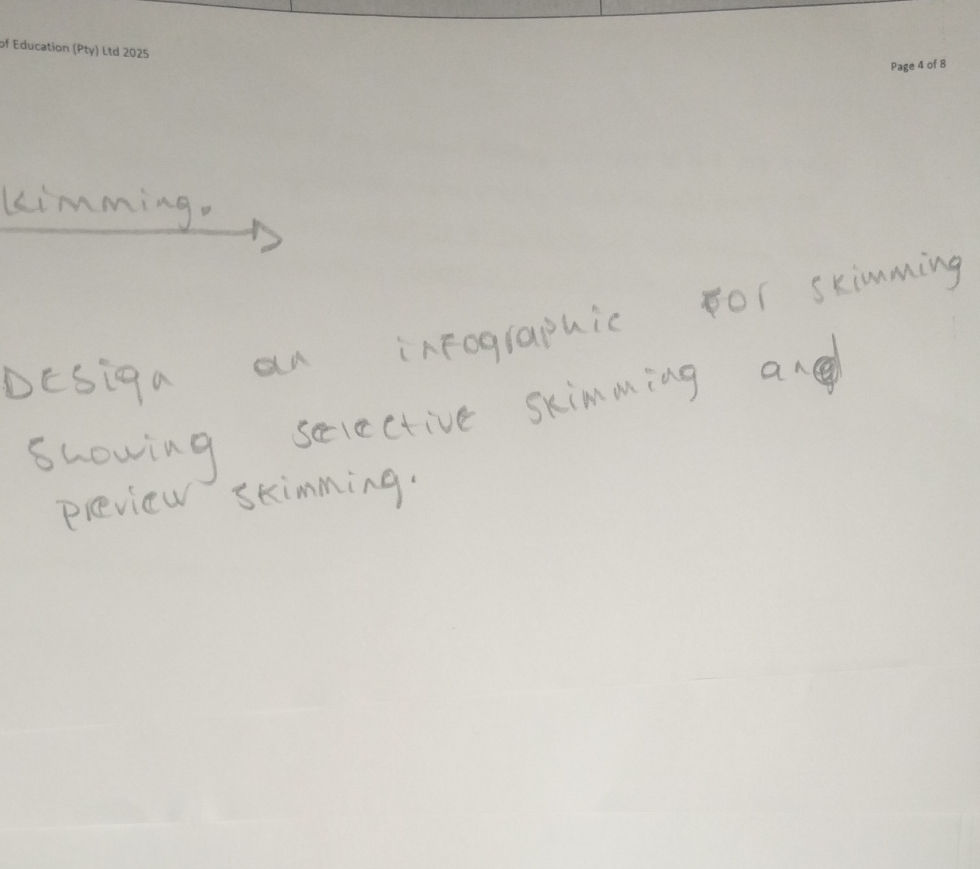 of Education (Pty) Ltd 2025
Page 4 of 8
kimming.
Design an infographic for skimming
showing selective skimming and
preview skimming.